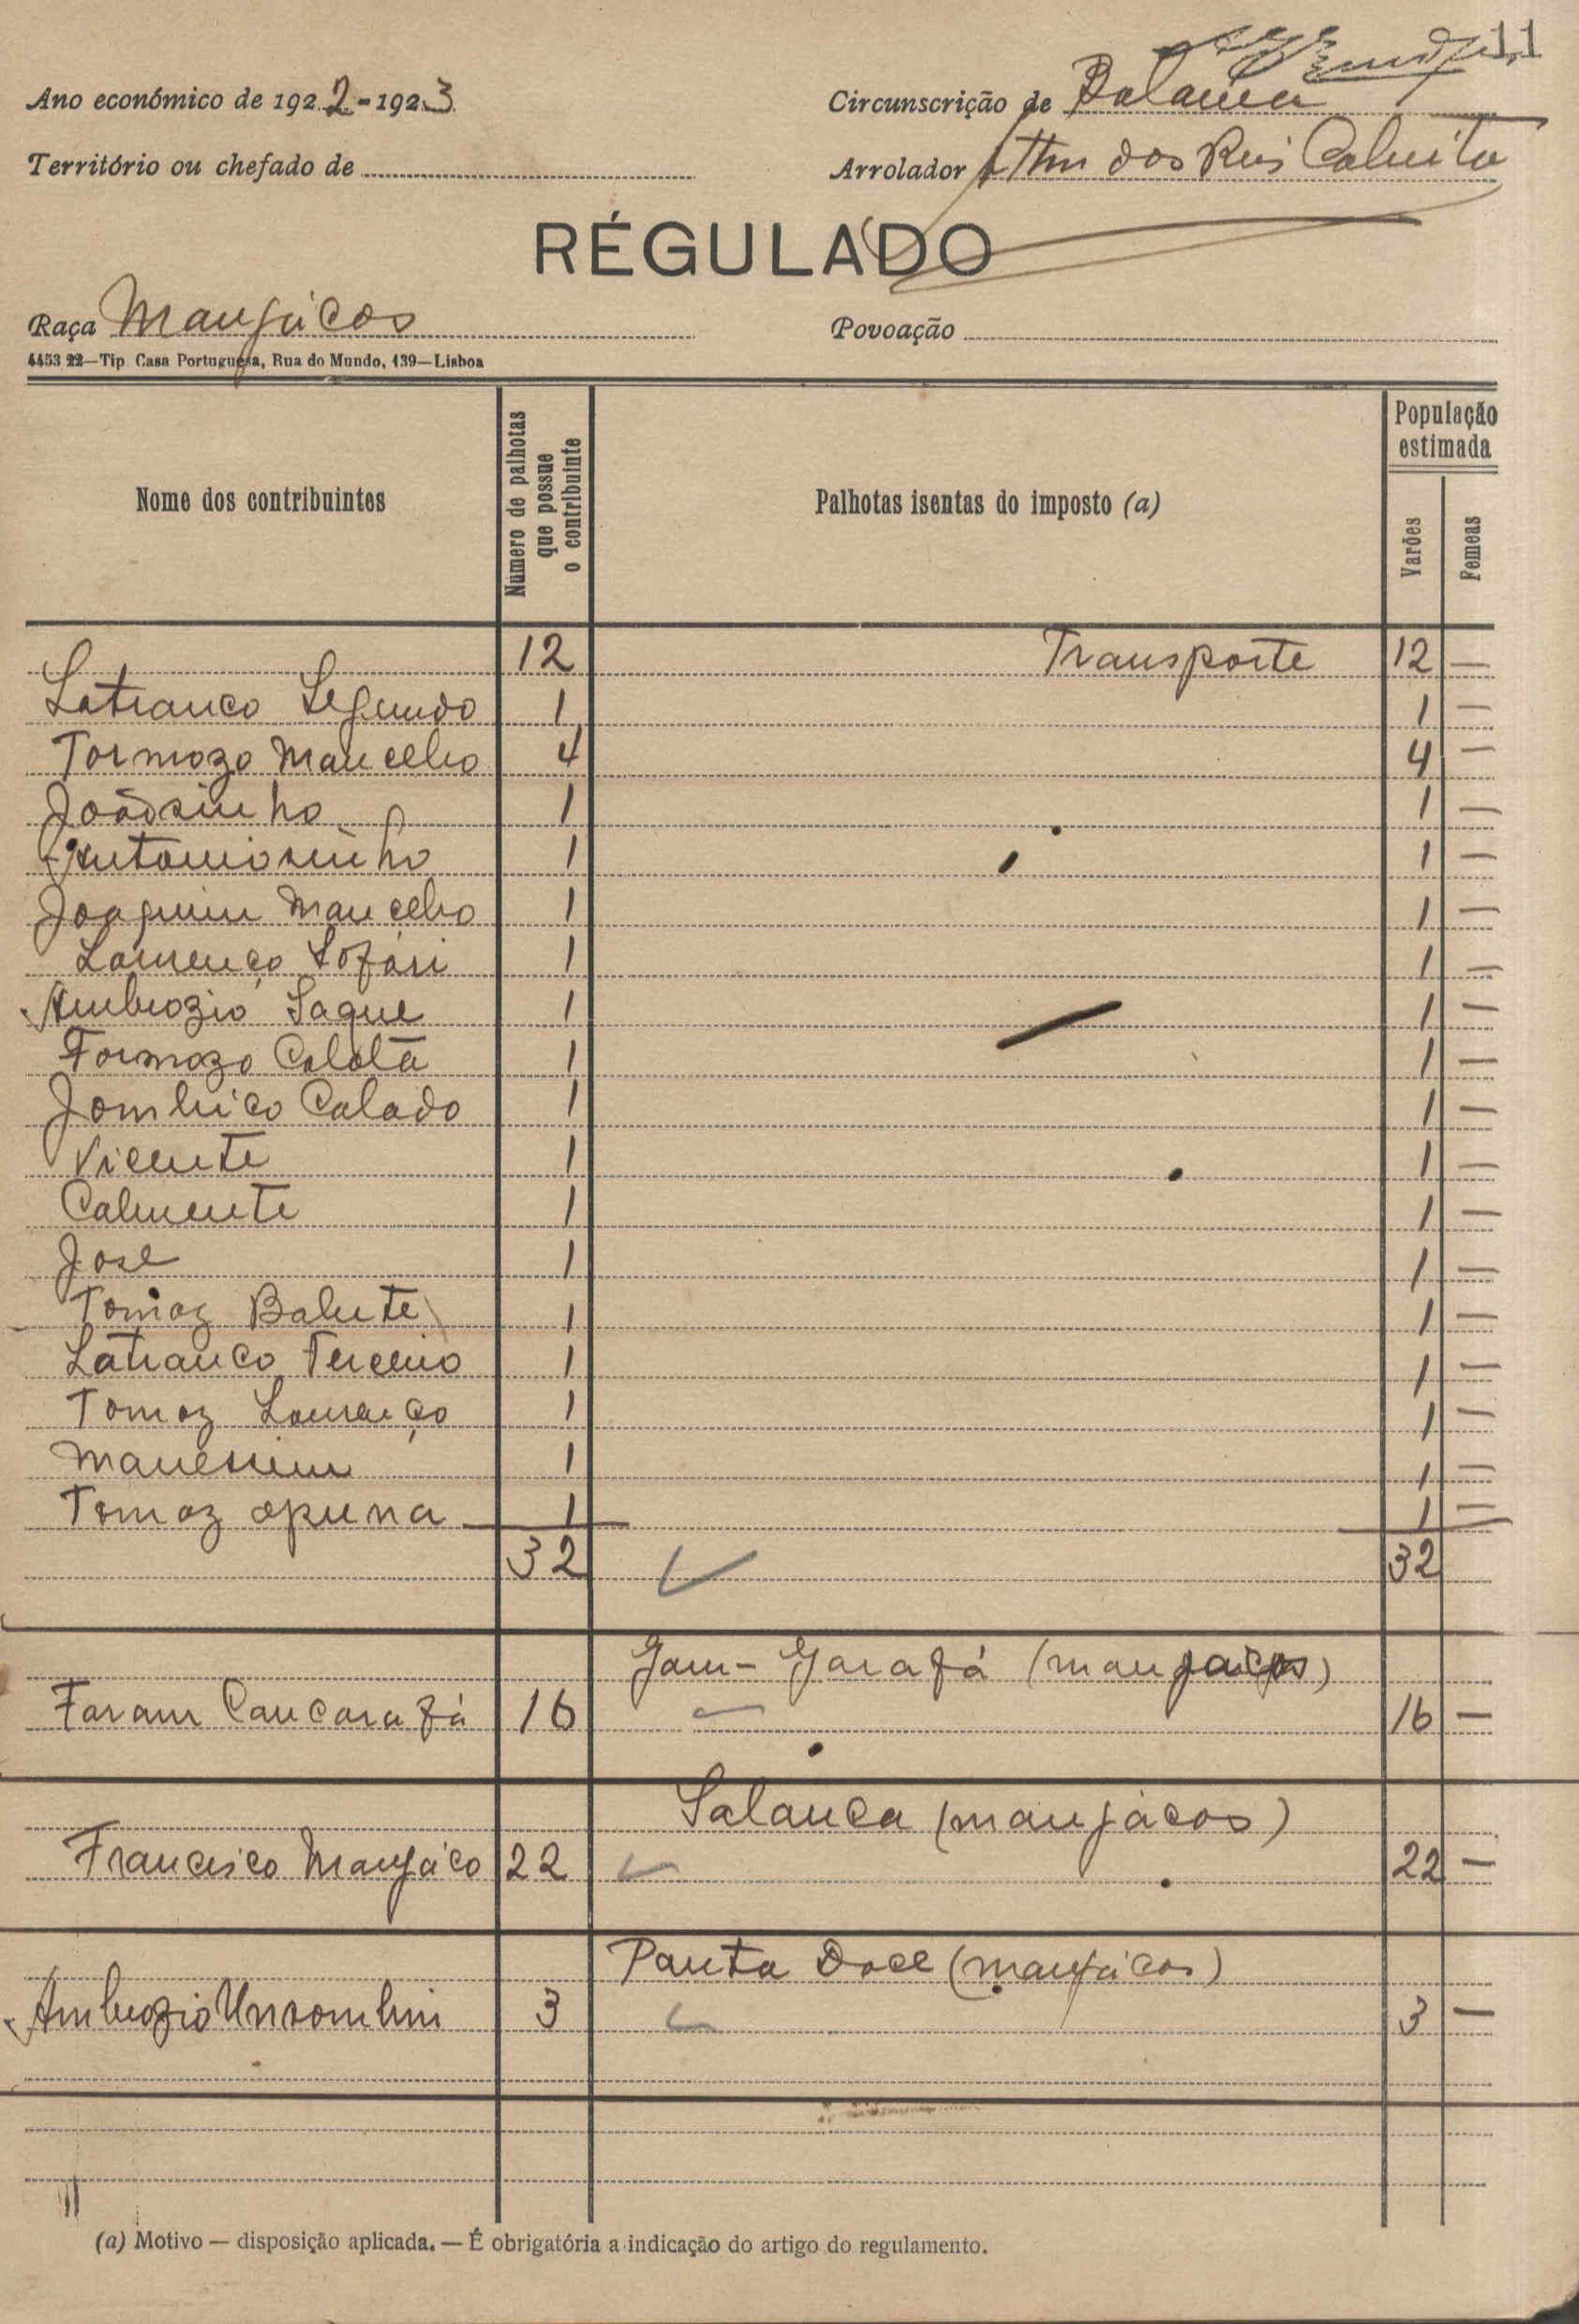 11
Ano económico de 1922-1923
Circunscrição de
Território ou chefado de
Arrolador dos Reis
RÉGULADO
Raça Manjácos
Povoação
4453 22—Tip. Casa Portuguesa, Rua do Mundo, 139—Lisboa
Nome dos contribuintes
Número de palhotas que possue o contribuinte
Palhotas isentas do imposto (a)
População estimada
Varões
Femeas
12 Transporte 12 —
Latranco Segundo 1 1 —
Tormozo Mancelho 4 4 —
Joãosinho 1 1 —
Antoniosinho 1 1 —
Joaquim Mancelho 1 1 —
Lourenço 1 1 —
Ambrozio Saque 1 1 —
Formozo 1 1 —
Calado 1 1 —
Vicente 1 1 —
1 1 —
José 1 1 —
Tomaz 1 1 —
Latranco Terceiro 1 1 —
Tomaz Lourenço 1 1 —
1 1 —
Tomaz 1 1 —
32 32
Jam-Garafá (manjacos)
Faram Cancarafá 16 16 —
Salanca (manjácos)
Francisco Manjáco 22 22 —
Panta Doce (manjácos)
Ambrozio 3 3 —
(a) Motivo — disposição aplicada. — É obrigatória a indicação do artigo do regulamento.